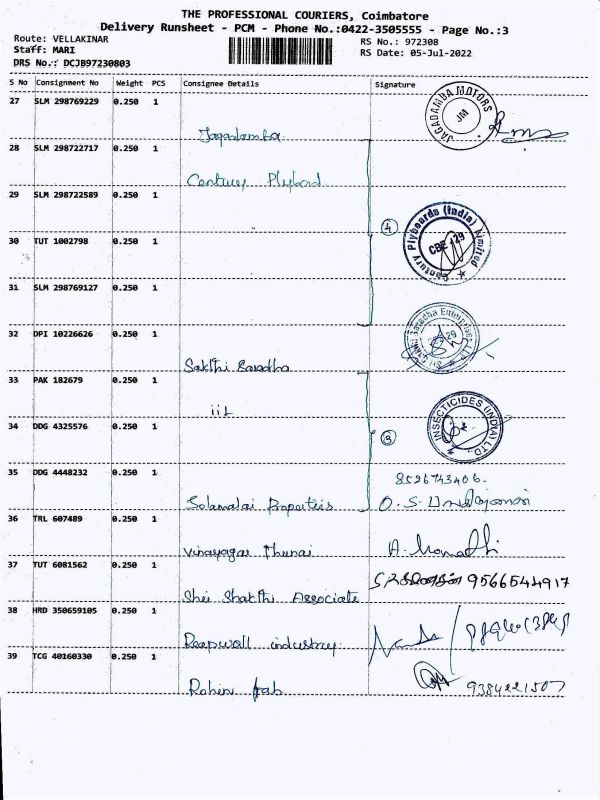 THE PROFESSIONAL COURIERS, Coimbatore
Delivery Runsheet - PCM - Phone No.:0422-3505555 - Page No.:3
Route: VELLAKINAR RS No.: 972308
Staff: MARI RS Date: 05-Jul-2022
DRS No.: DCJB97230803
S No Consignment No Weight PCS Consignee Details Signature
27 SLM 298769229 0.250 1
JAGADAMBA MOTORS
JM
Jagadamba
28 SLM 298722717 0.250 1
Century Plybord
29 SLM 298722589 0.250 1
Century Plyboards (India) Limited
CBE - 29
4
30 TUT 1002798 0.250 1
31 SLM 298769127 0.250 1
32 DPI 10226626 0.250 1
Sakthi Baradha
33 PAK 182679 0.250 1
iil
INSECTICIDES (INDIA) LTD.
34 DDG 4325576 0.250 1
3
35 DDG 4448232 0.250 1
8526743406.
Solamalai Properties
36 TRL 607489 0.250 1
Vinayagar Thunai
37 TUT 6081562 0.250 1
9566544917
Shri Shakthi Associate
38 HRD 350659105 0.250 1
Reapwell industry
39 TCG 40160330 0.250 1
Rohini fab 9384221507